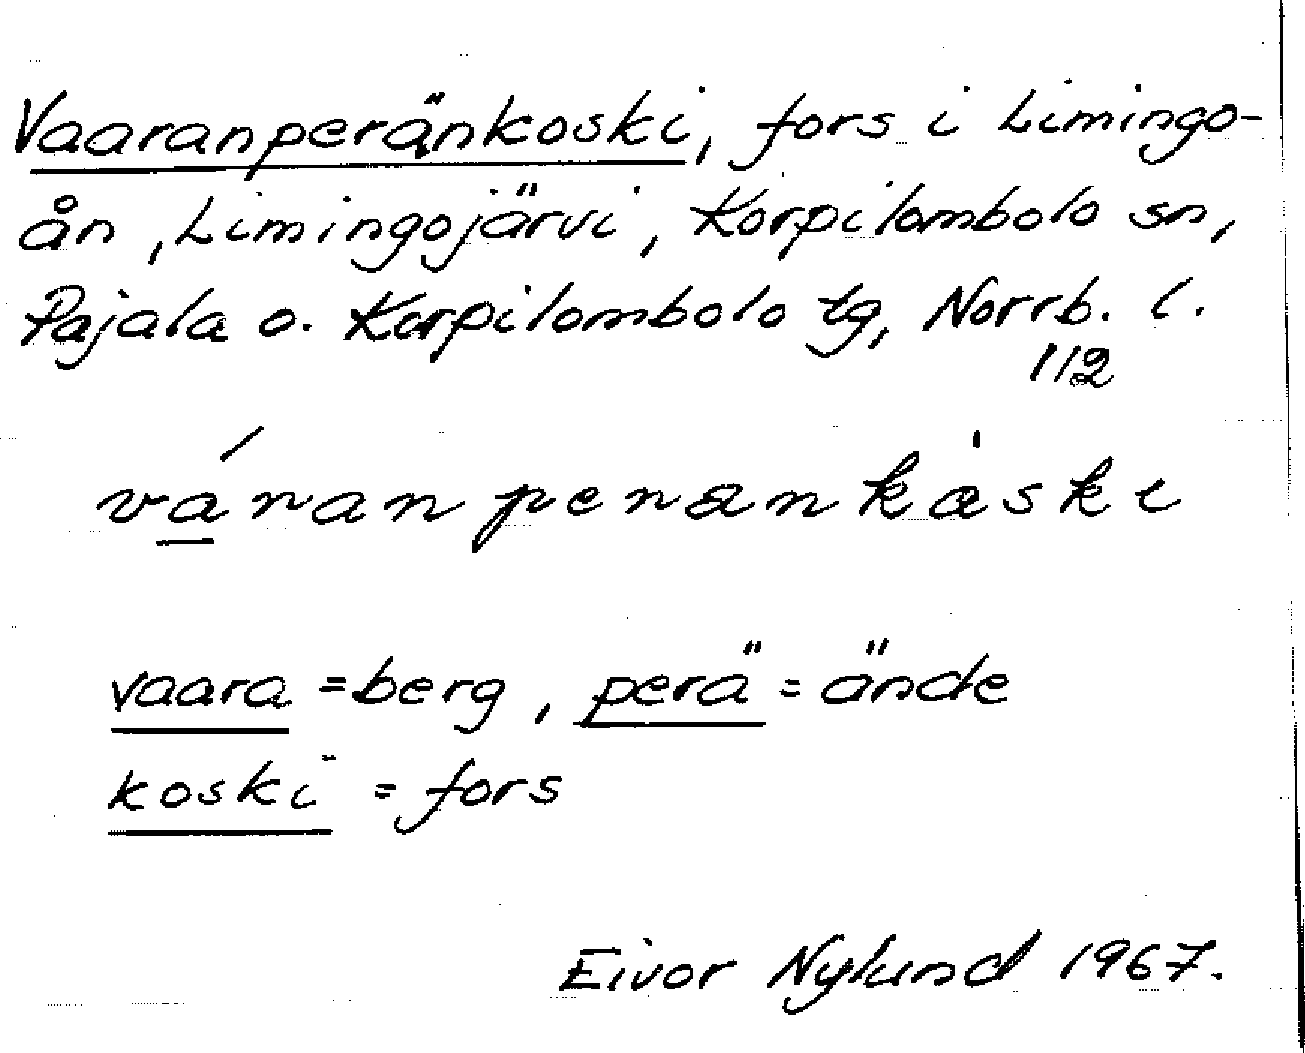 Vaaranperänkoski, fors i Limingo-
ån, Limingojärvi, Korpilombolo sn,
Pajala o. Korpilombolo tg, Norrb. l.
112
vaara = berg, perä = ände
koski = fors
Eivor Nylund 1967.